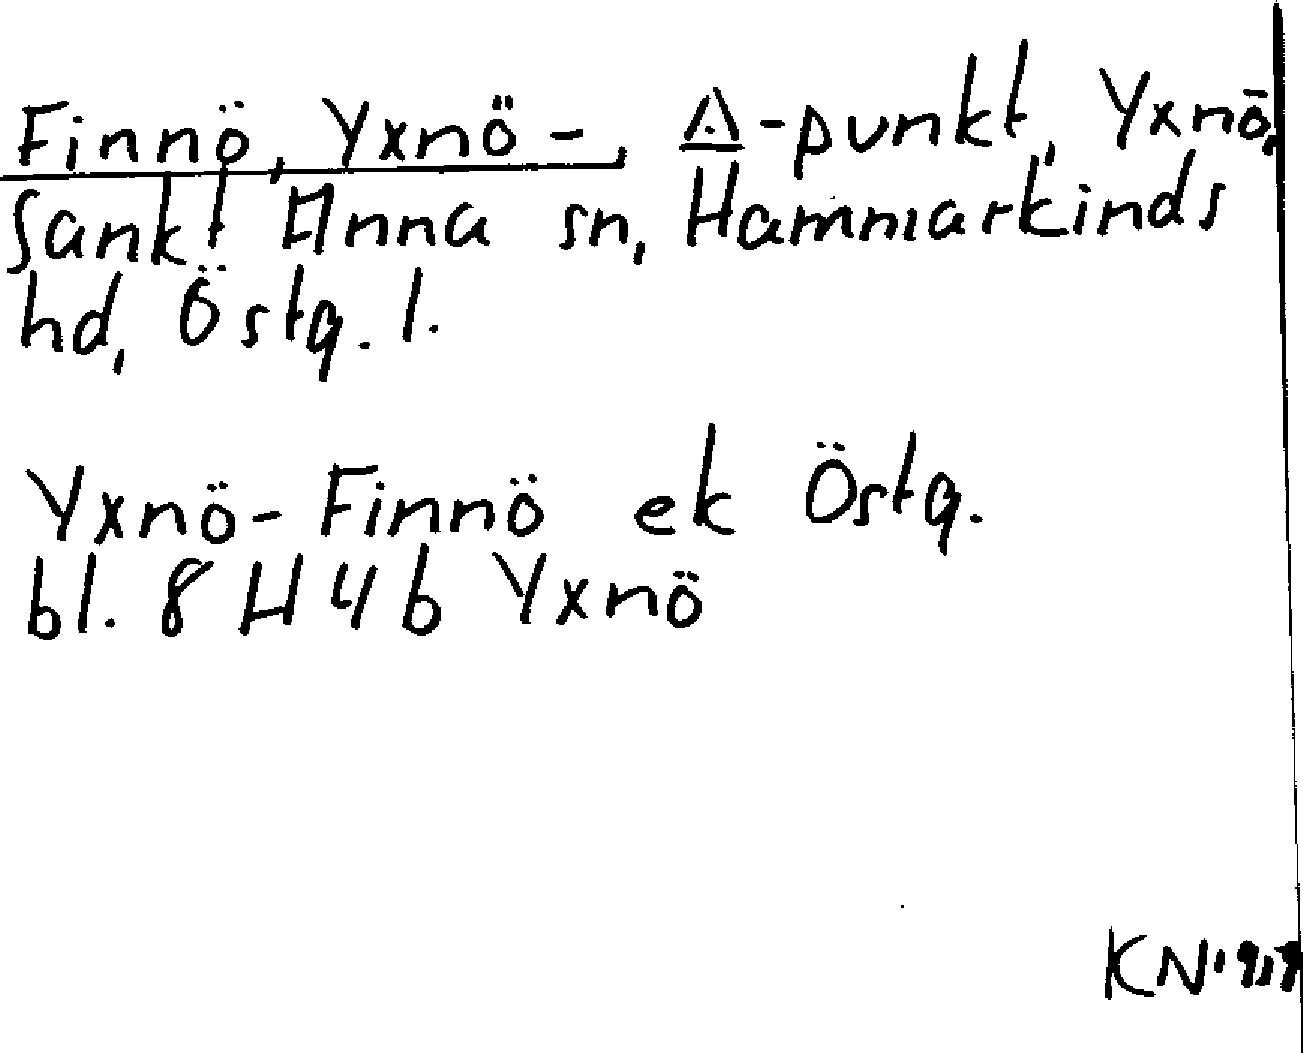 Finnö, Yxnö-, △-punkt, Yxnö,
Sankt Anna sn, Hammarkinds
hd, Östg. l.
Yxnö-Finnö ek Östg.
bl. 8 H 4 b Yxnö
KN